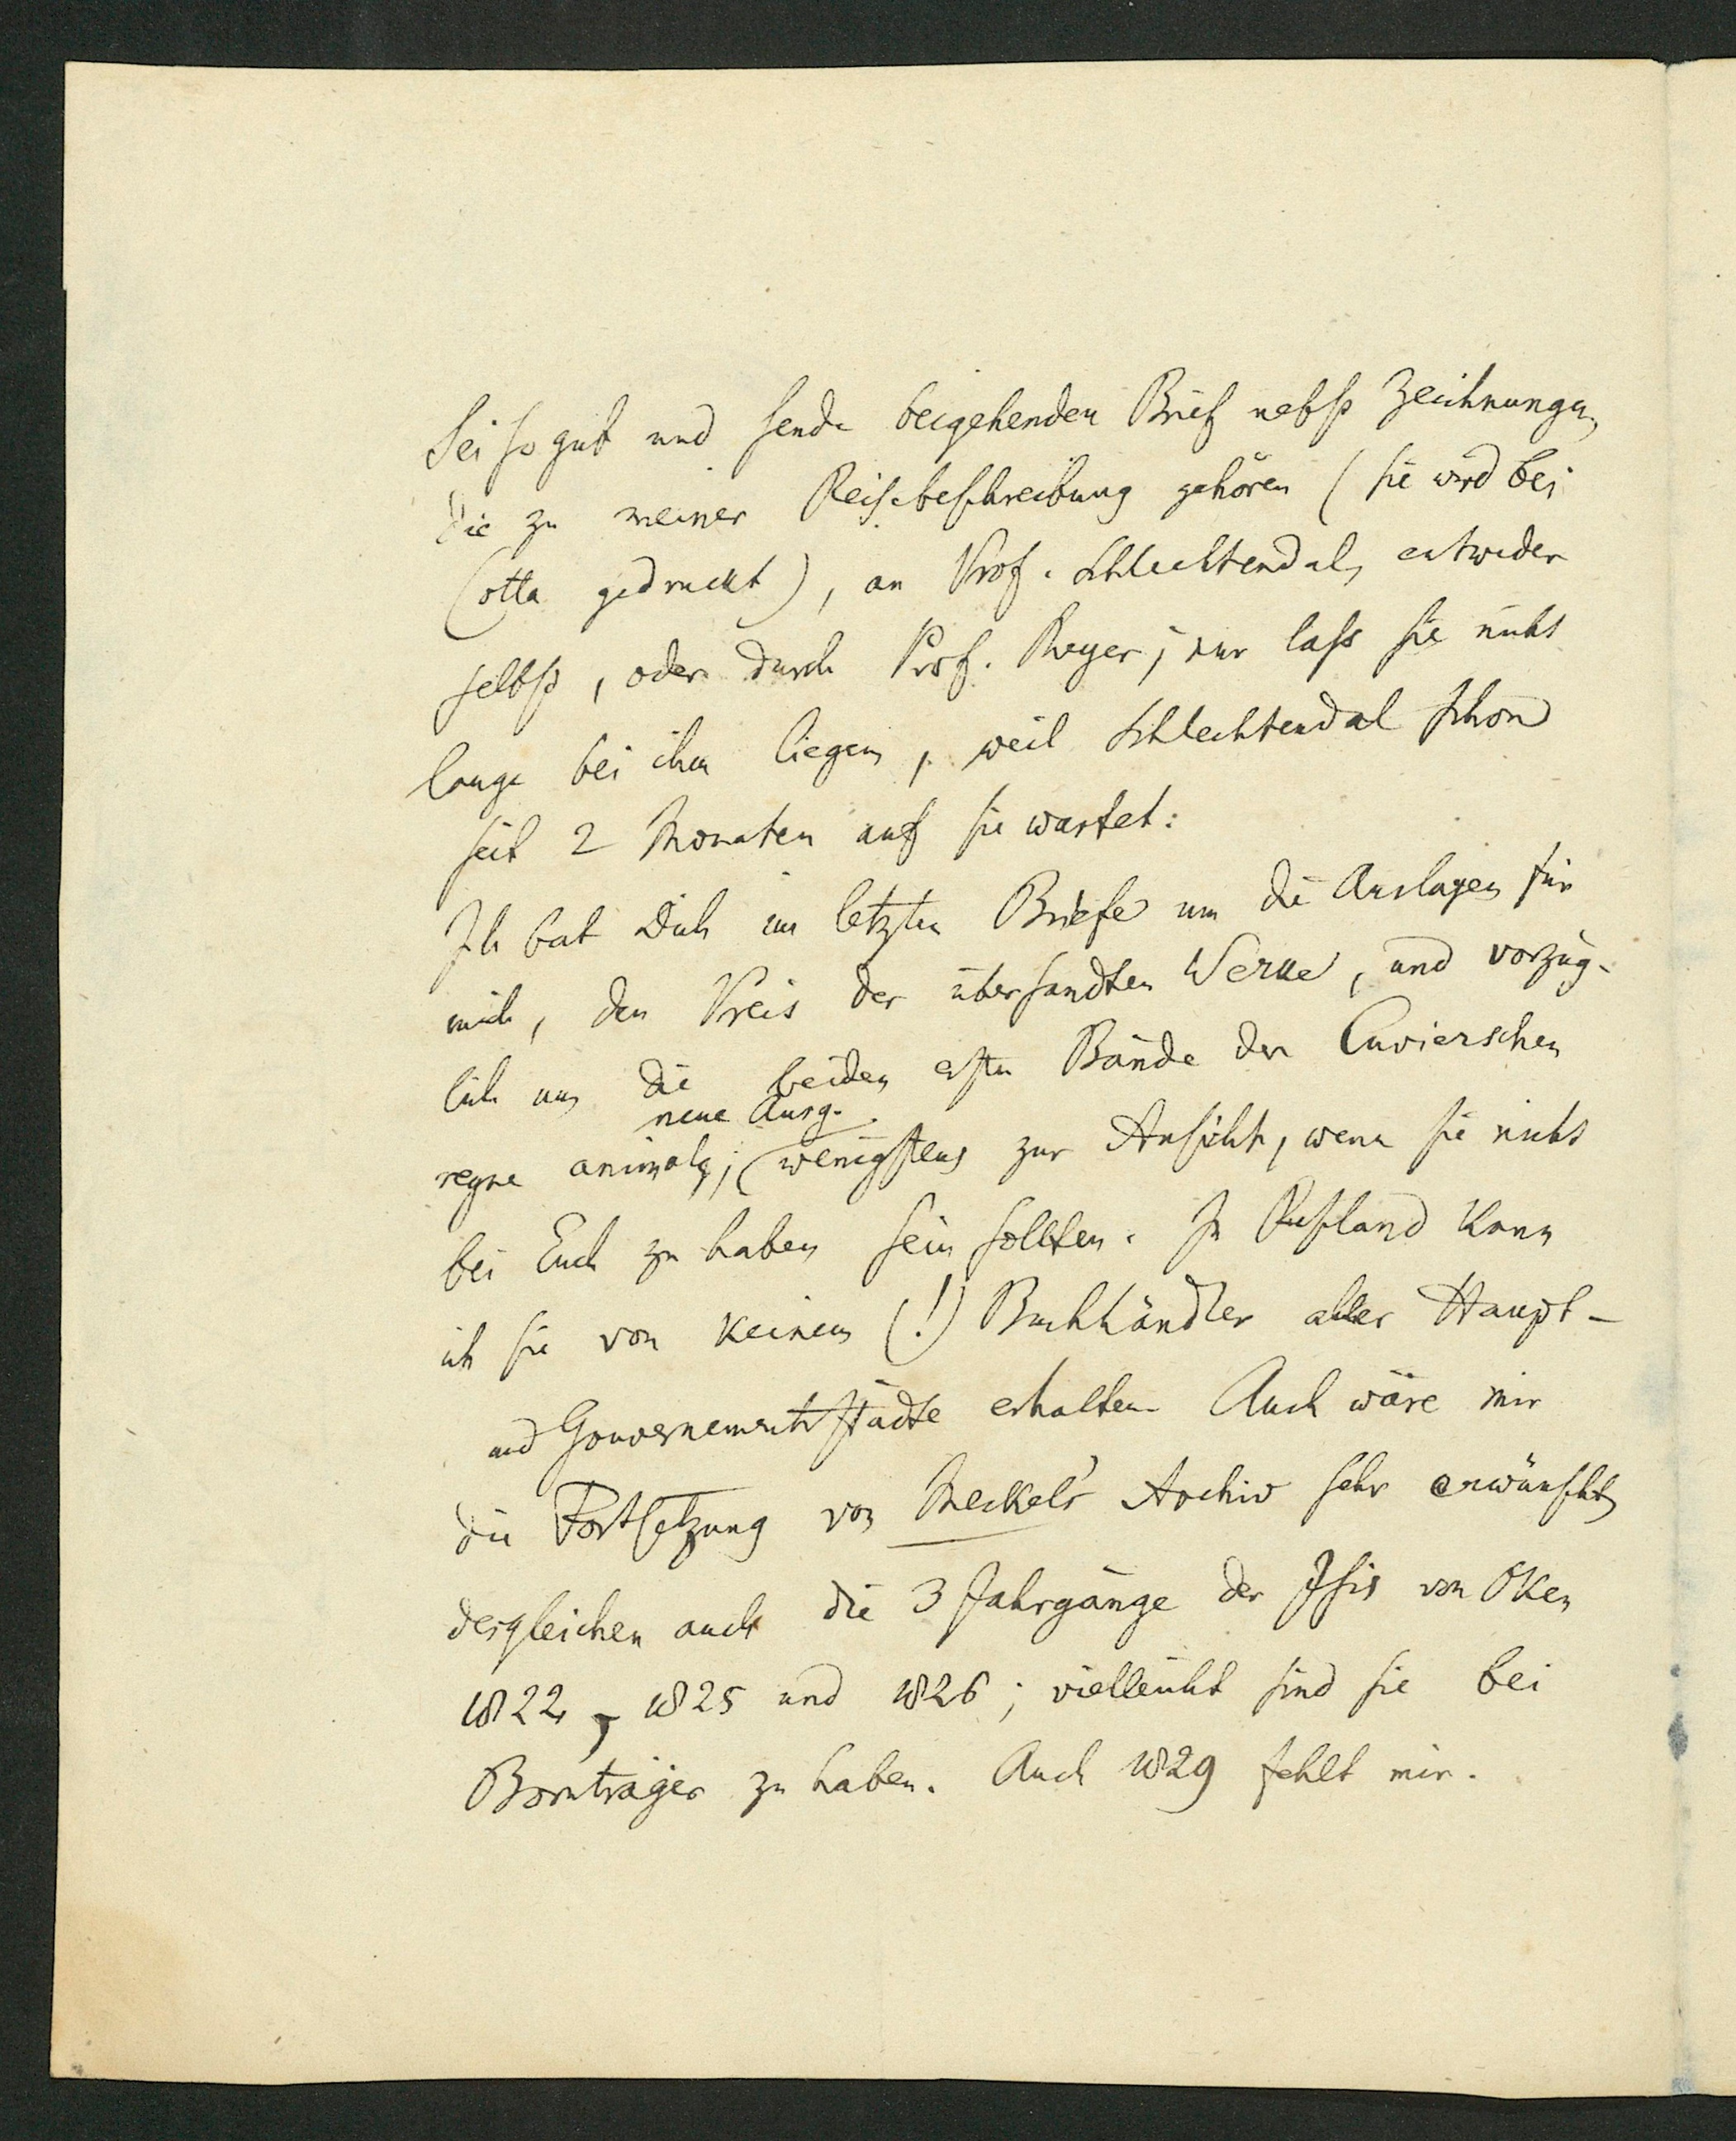 Sei so gut und sende beigehenden Brief nebst Zeichnungen,
die zu meiner Reisebeschreibung gehören (sie wird bei
Cotta gedruckt), an Prof. Schlechtendal, entweder
selbst, oder durch Prof. Meyer; nur lass sie nicht
lange bei ihm liegen, weil Schlechtendal schon
seit 2 Monaten auf sie wartet:
Ich bat Dich im letzten Briefe um die Auslagen für
mich, den Preis der übersandten Werke, und vorzüg-
lich um die beiden ersten Bände der Cuvierschen
neue Ausg.
regne animale; (wenigstens zur Ansicht, wenn sie nicht
bei Euch zu haben sein sollten. In Rußland kann
ich sie von keinem (!) Buchhändler aller Haupt-
und Gouvernementsstädte erhalten. Auch wäre mir
die Fortsetzung von Meckel's Archiv sehr erwünscht,
desgleichen auch die 3 Jahrgänge der Isis von Oken
1822, 1825 und 1826; vielleicht sind sie bei
Bornträger zu haben. Auch 1829 fehlt mir.